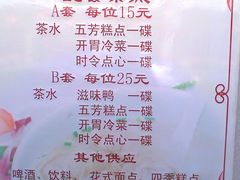 A套 每位15元
茶水 五芳糕点一碟
开胃冷菜一碟
时令点心一碟
B套 每位25元
茶水 滋味鸭 一碟
五芳糕点一碟
开胃冷菜一碟
时令点心一碟
其他供应
啤酒、饮料、花式面点、四季糕点